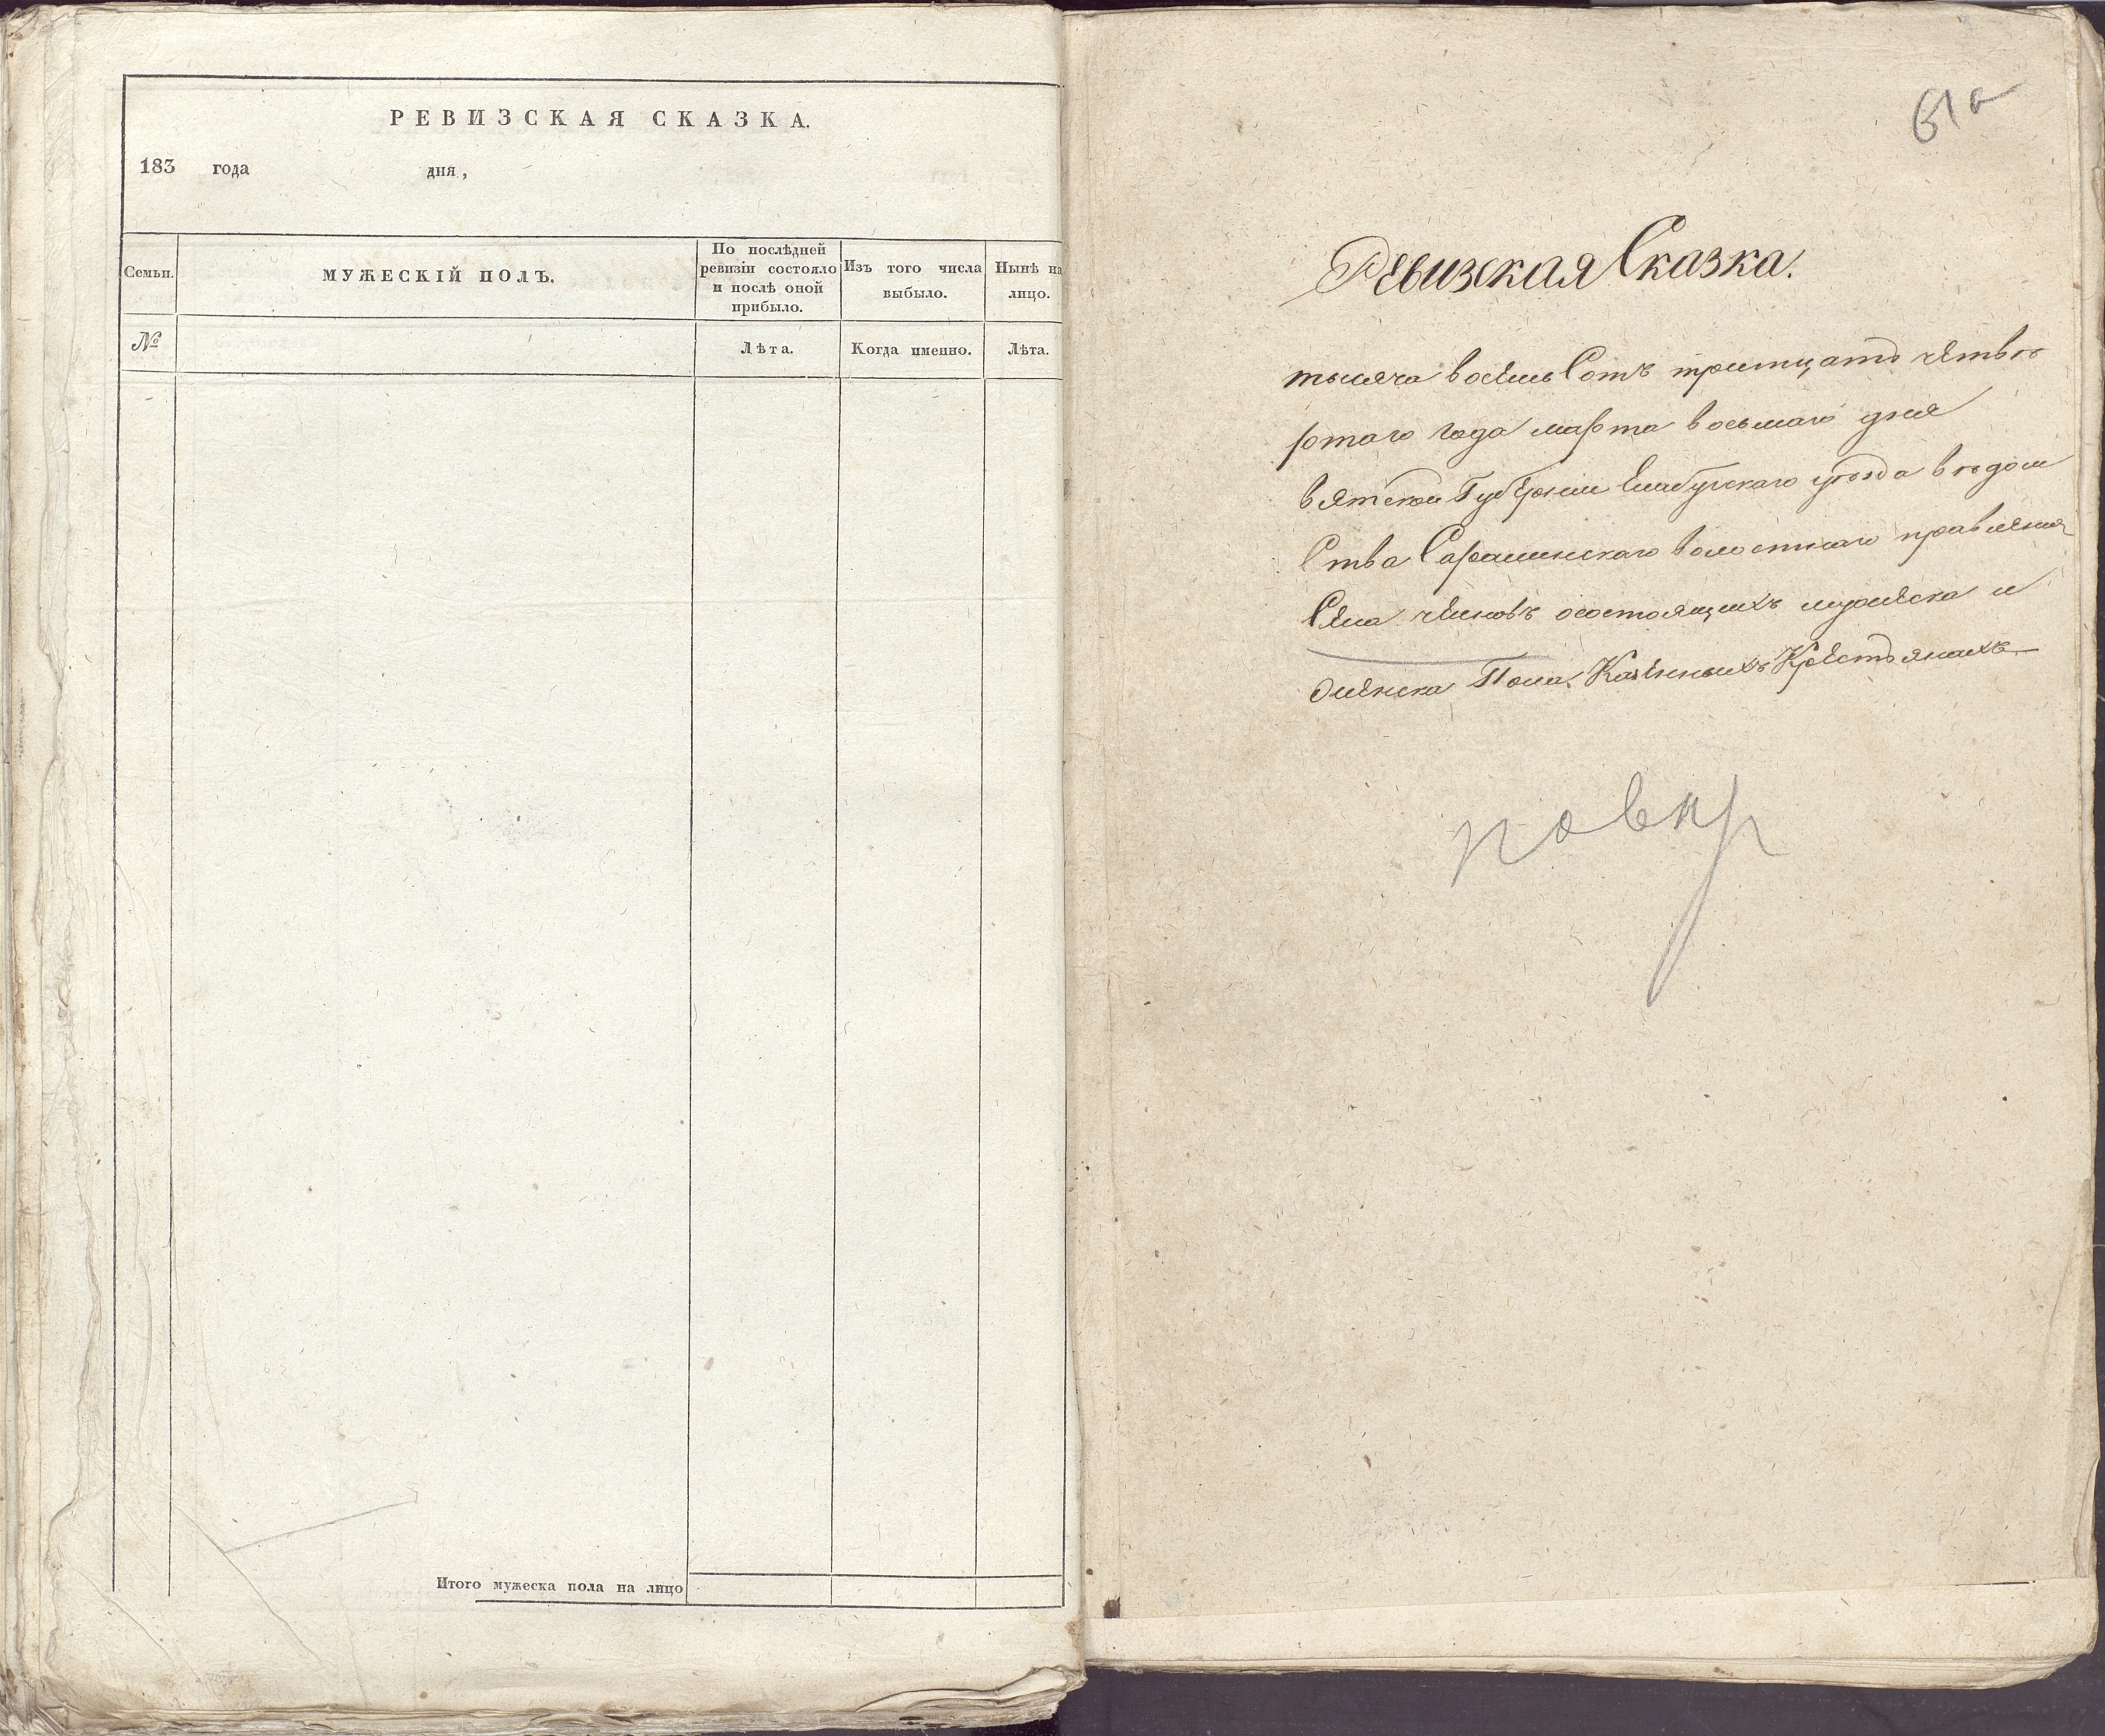 РЕВИЗСКАЯ СКАЗКА.
183 года дня,
Семьи.
МУЖЕСКІЙ ПОЛЪ.
По послѣдней
ревизіи состояло
и послѣ оной
прибыло.
Изъ того числа
выбыло.
Нынѣ на
лицо.
№
Лѣта.
Когда именно.
Лѣта.
Итого мужеска пола на лицо
61а
Ревизская Сказка.
тысяча восемь Сотъ тритцать четве
ртаго года марта восьмаго дня
вятской Губернии Елабугского уѣзда вѣдом
Ства Саралинскаго волостнаго правления
Села челновъ осостоящихъ мужеска и
женска Пола Казенныхъ Крестьянахъ